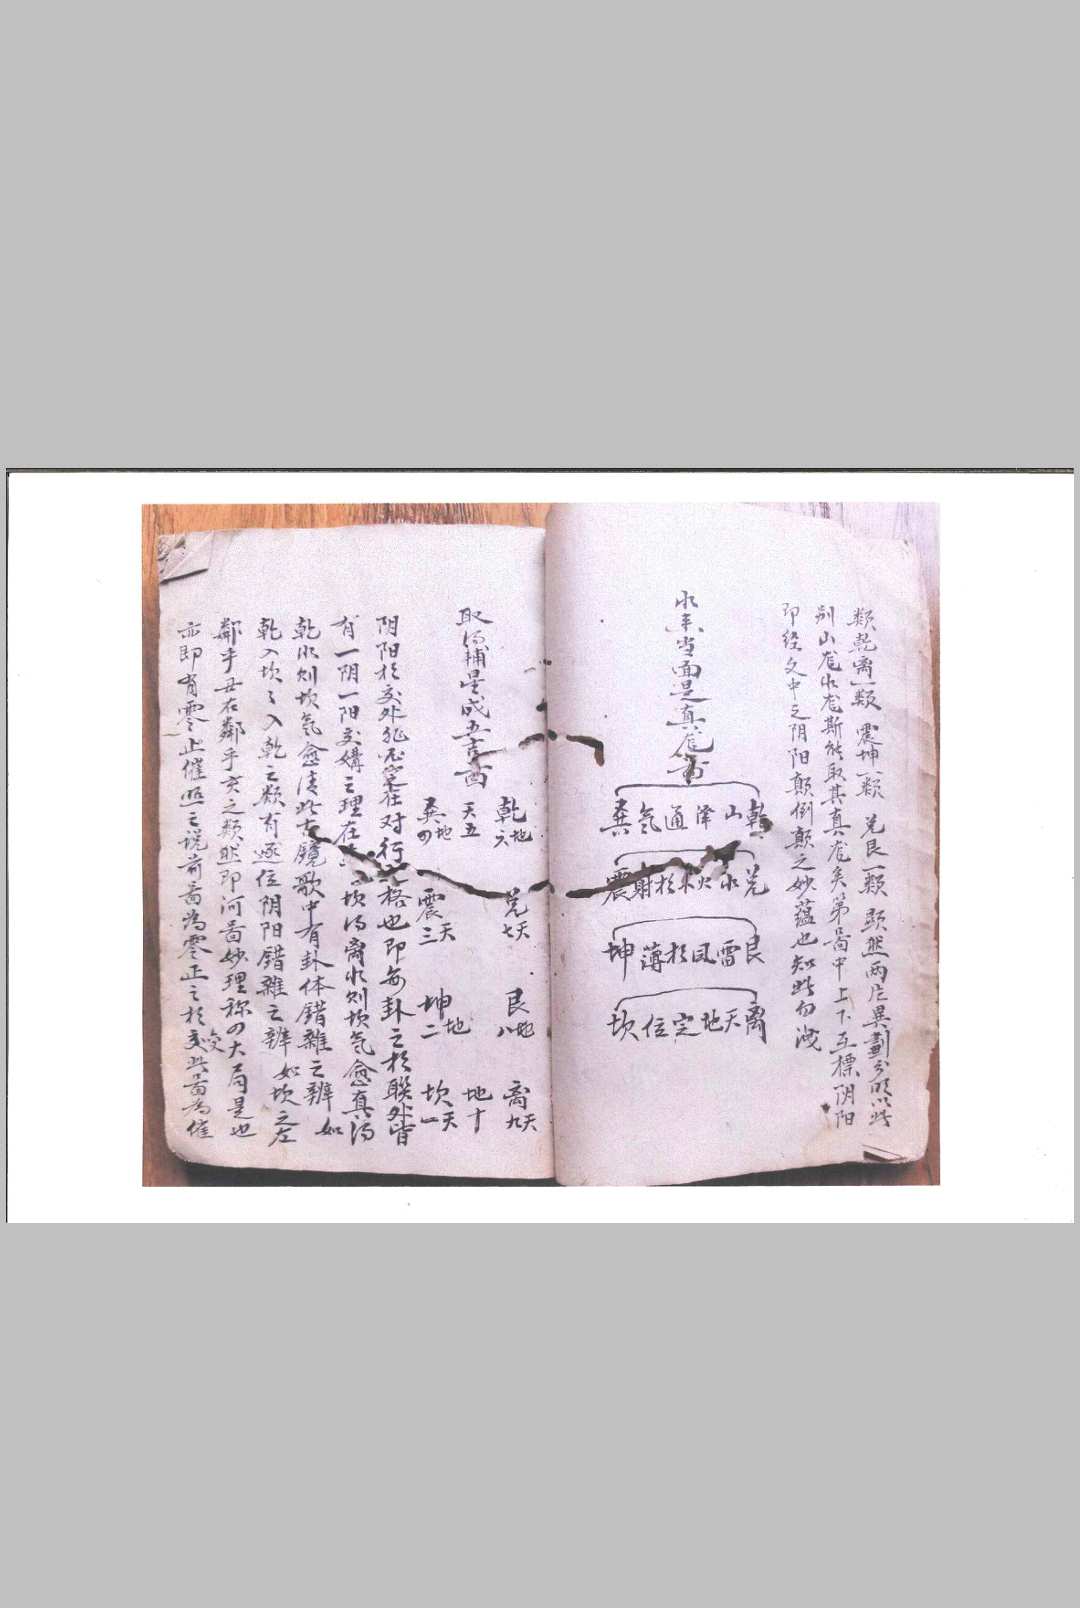 類乾离一類 震坤一類 兑艮一類 顕然两片異劃分明以此
别山龙水龙斯能取其真龙矣第啚中上下互標阴阳
即经文中之阴阳颠倒颠之妙蕴也知此勿洩
水来当面是真龙啚
乾山泽通氣巽
兑水火不相射震
艮雷風相薄坤
离天地定位坎
取得補星成五吉啚
乾地六 兑天七 艮地八 离天九
天五 地十
巽地四 震天三 坤地二 坎天一
阴阳相交外 对行 格也即每卦之相聯外皆
有一阴一阳交媾之理在 坎得离水则坎氣愈真得
乾水则坎氣愈清此古鏡歌中有卦体錯雜之辨 如
乾入坎坎入乾之類有逐位阴阳錯雜之辨 如坎之左
鄰乎丑右鄰乎亥之類 然即河啚妙理称四大局是也
亦即有零正催照之说前啚为零正之相交此啚为催